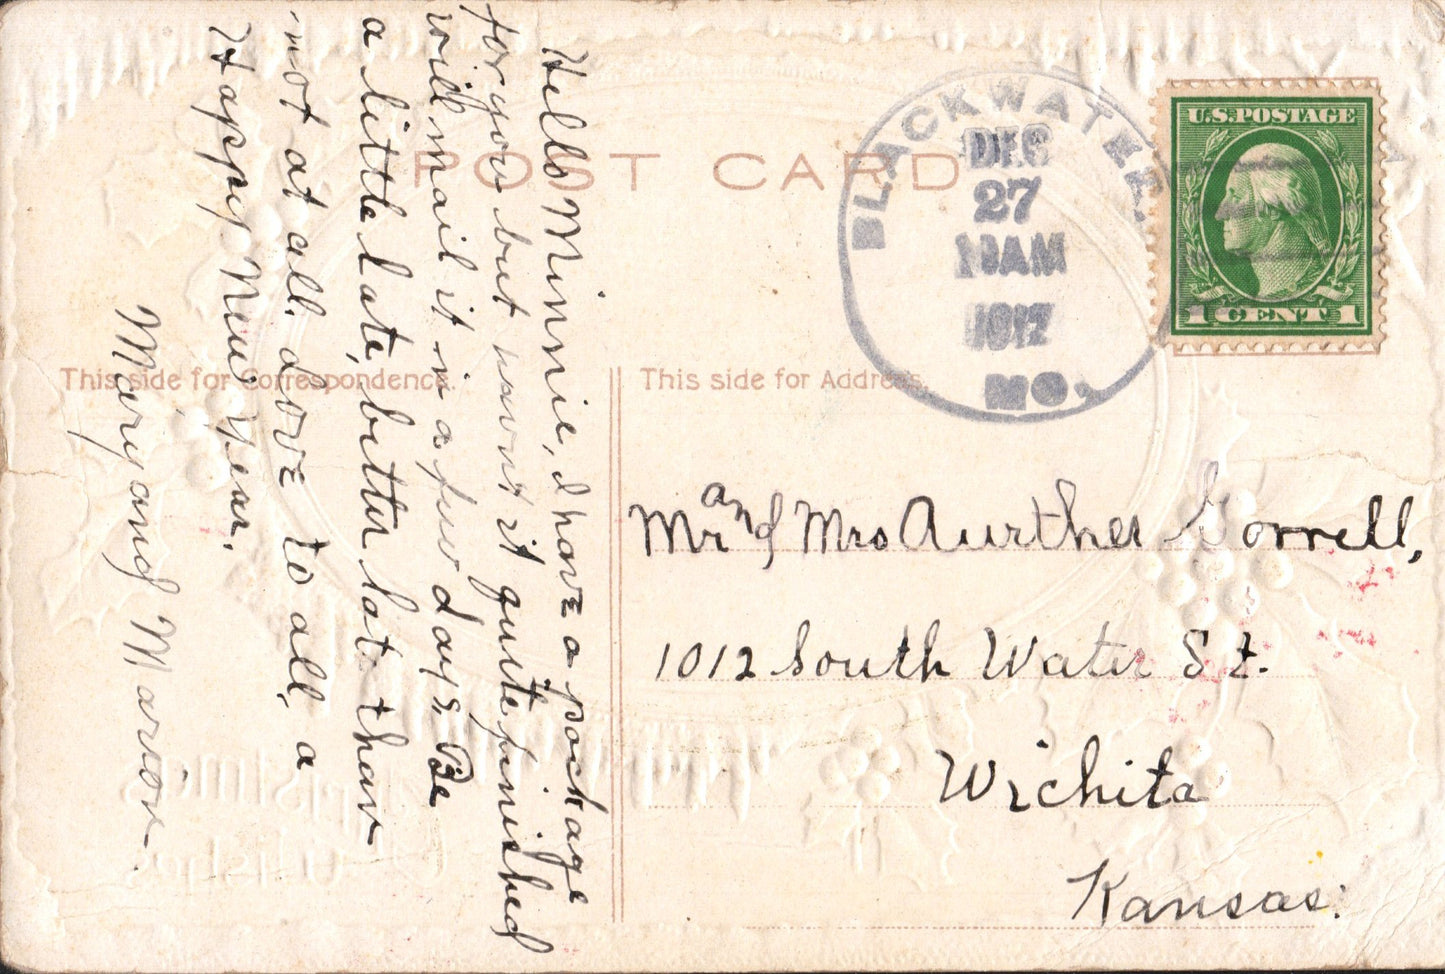 POST CARD
BLACKWATER
DEC
27
10AM
1912
MO.
U.S. POSTAGE
1 CENT 1
This side for Correspondence.
This side for Address.
Hello Minnie, I have a package
for you but havn't it quite finished
will mail it in a few days. Be
a little late, better lat than
not at all. Love to all. a
Happy New Year.
Mary and Marion.
Mr and Mrs Aurther Gorrell,
1012 South Water St.
Wichita
Kansas.